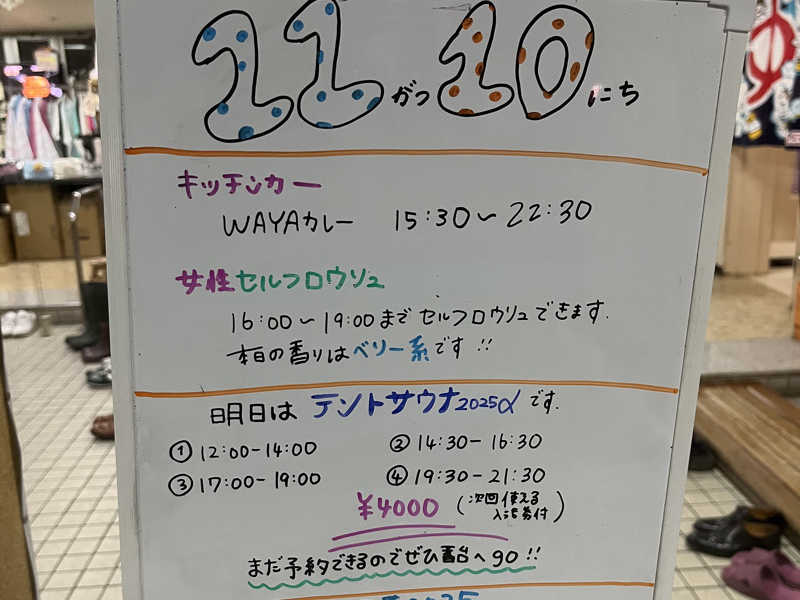 11がつ10にち
キッチンカー
WAYAカレー 15:30〜22:30
女性セルフロウリュ
16:00〜19:00まで セルフロウリュできます.
本日の香りはベリー系です!!
明日は テントサウナ2025α です.
① 12:00-14:00 ② 14:30-16:30
③ 17:00-19:00 ④ 19:30-21:30
¥4000 (次回使える
入浴券付)
まだ予約できるのでぜひ番台へgo!!